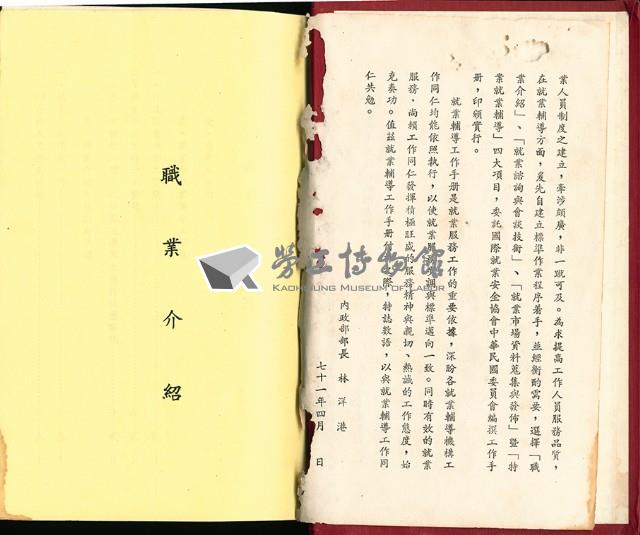 業人員制度之建立，牽涉頗廣，非一蹴可及。為求提高工作人員服務品質，
在就業輔導方面，爰先自建立標準作業程序着手，並經衡酌需要，選擇「職
業介紹」、「就業諮詢與會談技術」、「就業市場資料蒐集與發佈」暨「特
業就業輔導」四大項目，委託國際就業安全協會中華民國委員會編撰工作手
冊，印頒實行。
就業輔導工作手册是就業服務工作的重要依據，深盼各就業輔導機構工
作同仁均能依照執行，以使就業服務步調與標準邁向一致。同時有效的就業
服務，尚賴工作同仁發揮積極旺盛的服務精神與親切、熱誠的工作態度，始
克奏功。值茲就業輔導工作手册付印之際，特誌數語，以與就業輔導工作同
仁共勉。
內政部部長 林洋港
七十一年四月 日
職業介紹
勞工博物館
KAOHSIUNG MUSEUM OF LABOR